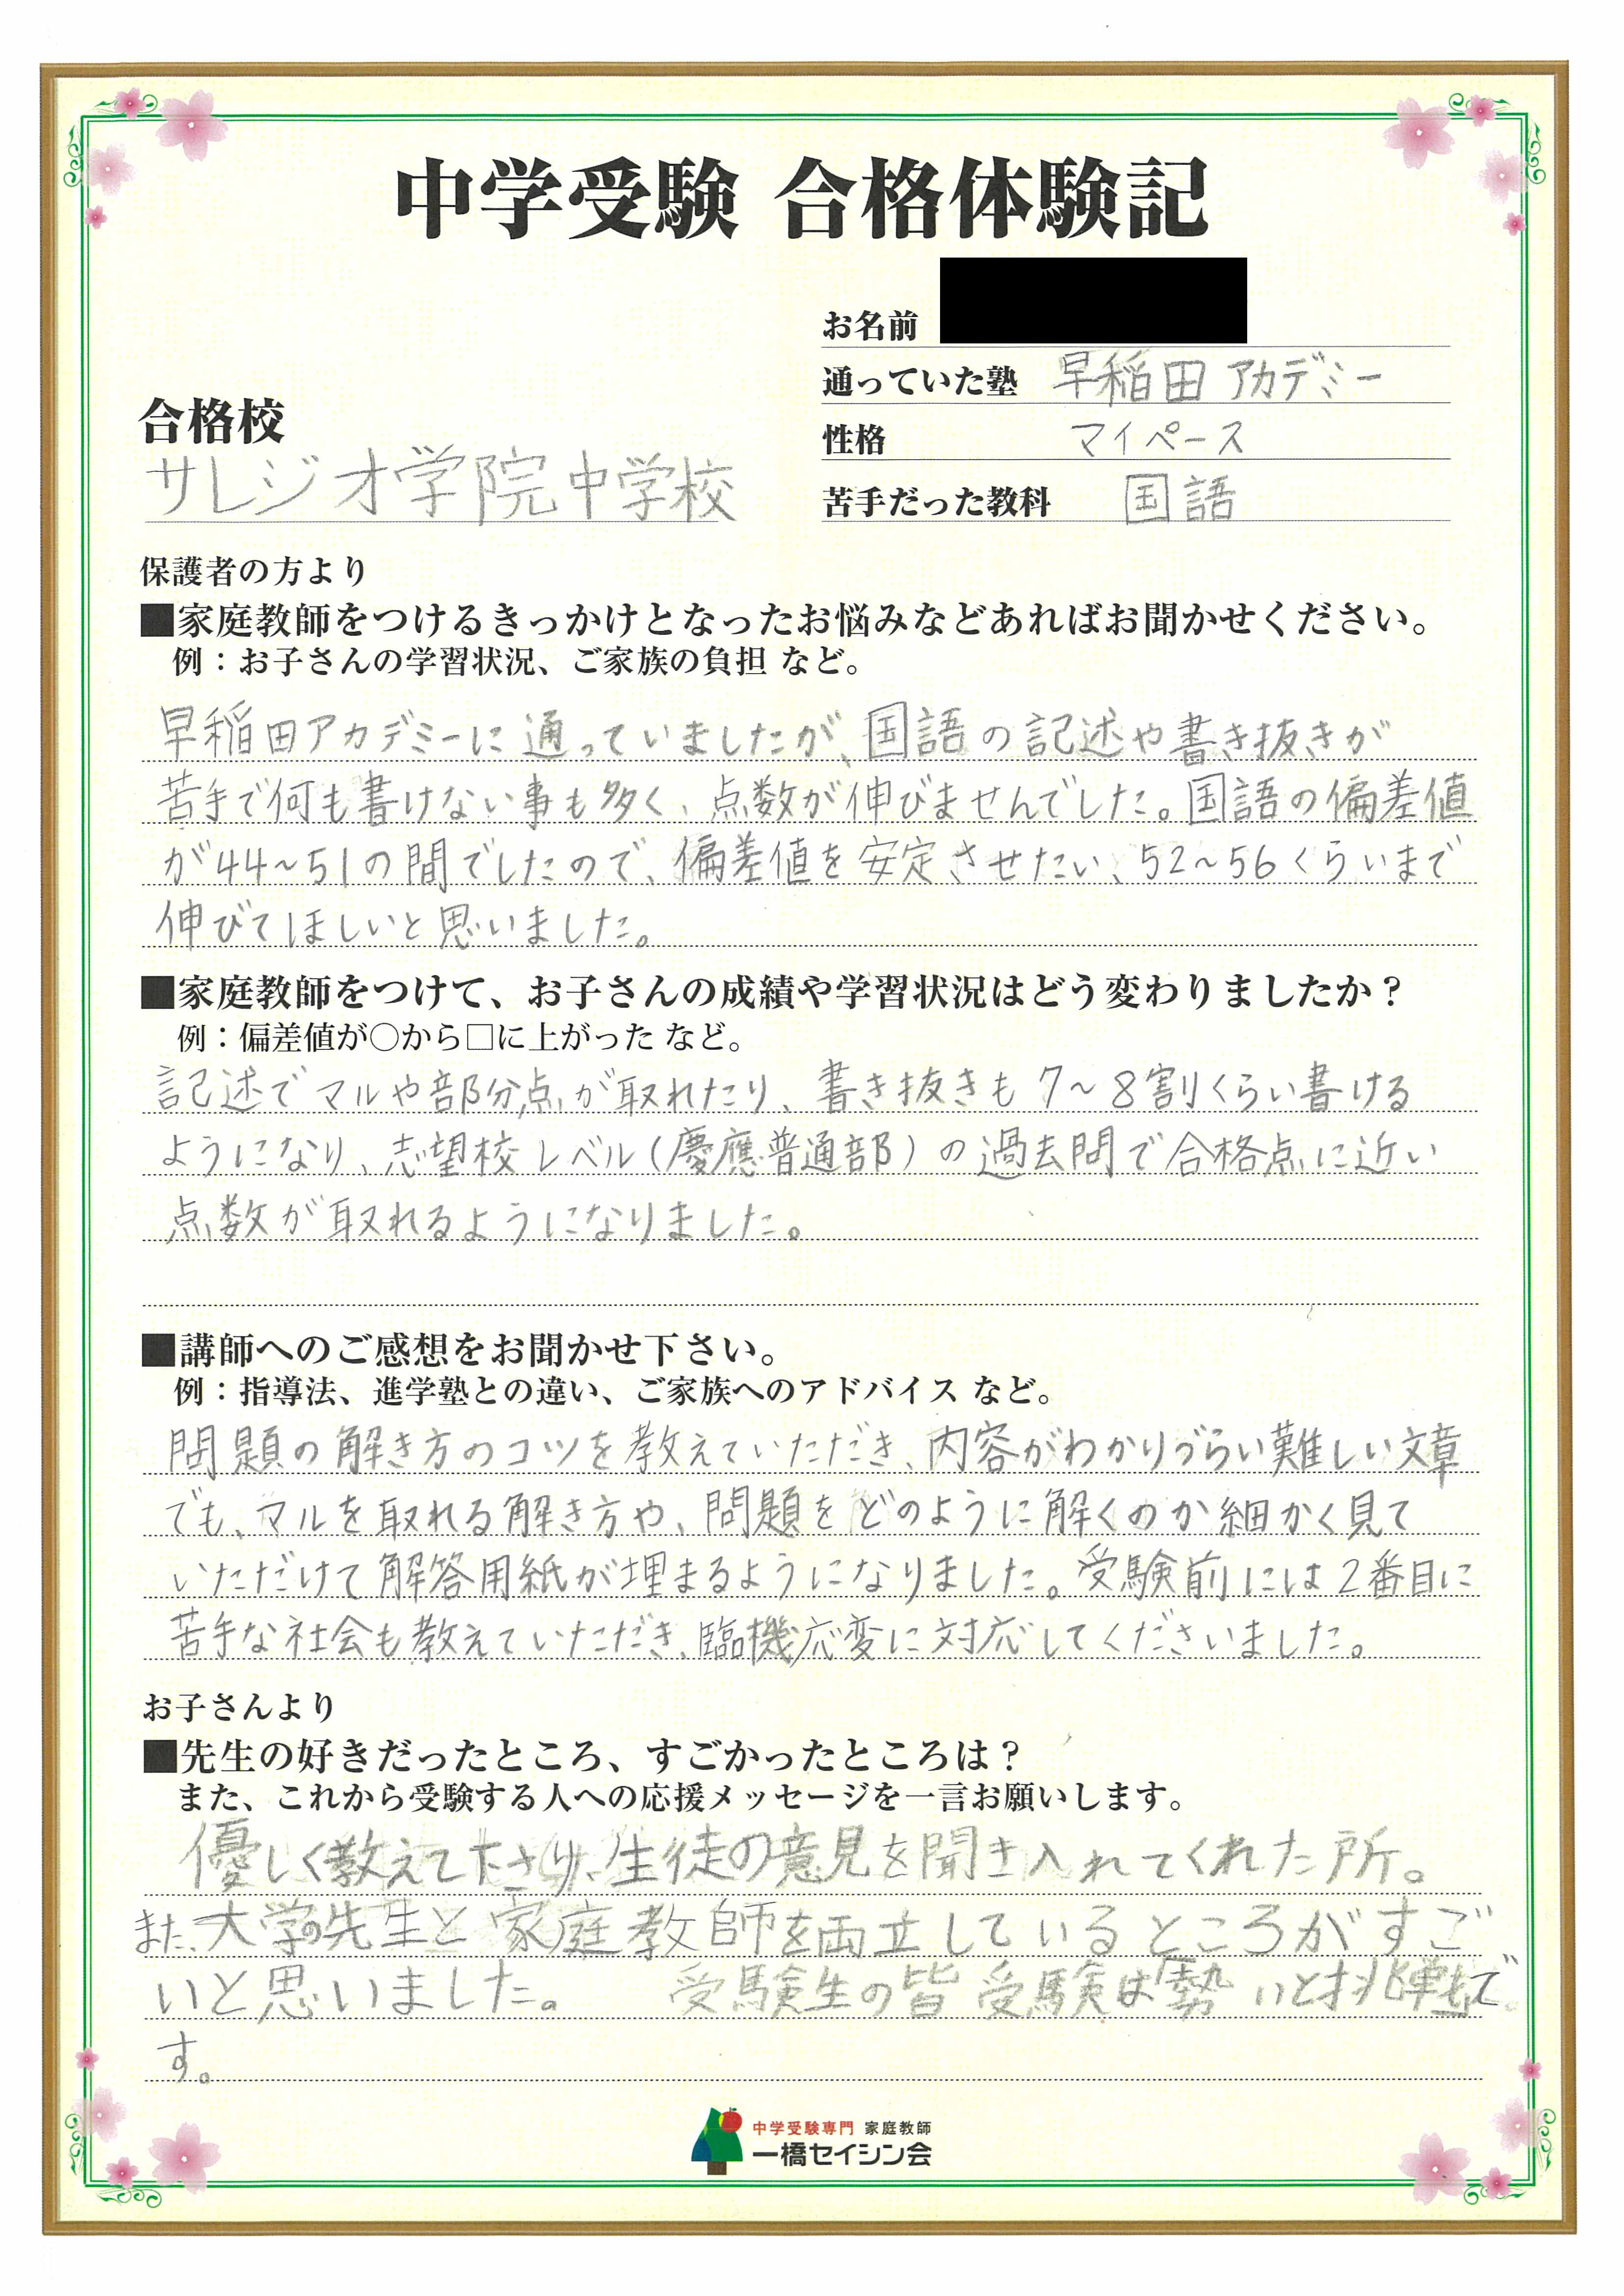 中学受験 合格体験記
お名前
通っていた塾 早稲田アカデミー
性格 マイペース
苦手だった教科 国語
合格校
サレジオ学院中学校
保護者の方より
■家庭教師をつけるきっかけとなったお悩みなどあればお聞かせください。
例：お子さんの学習状況、ご家族の負担 など。
早稲田アカデミーに通っていましたが、国語の記述や書き抜きが
苦手で何も書けない事も多く、点数が伸びませんでした。国語の偏差値
が44～51の間でしたので、偏差値を安定させたい、52～56くらいまで
伸びてほしいと思いました。
■家庭教師をつけて、お子さんの成績や学習状況はどう変わりましたか？
例：偏差値が〇から□に上がった など。
記述でマルや部分点が取れたり、書き抜きも7～8割くらい書ける
ようになり、志望校レベル(慶應普通部)の過去問で合格点に近い
点数が取れるようになりました。
■講師へのご感想をお聞かせ下さい。
例：指導法、進学塾との違い、ご家族へのアドバイス など。
問題の解き方のコツを教えていただき、内容がわかりづらい難しい文章
でも、マルを取れる解き方や、問題をどのように解くのか細かく見て
いただけて解答用紙が埋まるようになりました。受験前には2番目に
苦手な社会も教えていただき、臨機応変に対応してくださいました。
お子さんより
■先生の好きだったところ、すごかったところは？
また、これから受験する人への応援メッセージを一言お願いします。
優しく教えて下さり、生徒の意見を聞き入れてくれた所。
また、大学の先生と家庭教師を両立しているところがすご
いと思いました。 受験生の皆 受験は勢いと挑戦で
す。
中学受験専門 家庭教師
一橋セイシン会